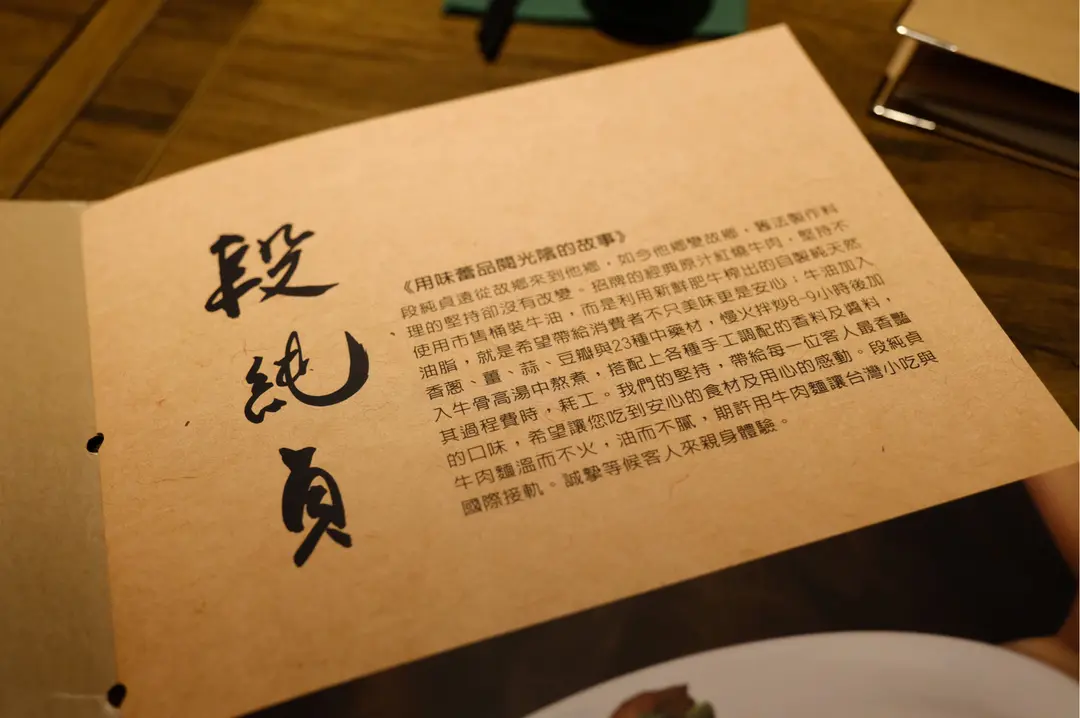 段純貞
《用味蕾品閱光陰的故事》
段純貞遠從故鄉來到他鄉，如今他鄉變故鄉，舊法製作料
理的堅持卻沒有改變。招牌的經典原汁紅燒牛肉，堅持不
使用市售桶裝牛油，而是利用新鮮肥牛榨出的自製純天然
油脂，就是希望帶給消費者不只美味更是安心；牛油加入
香蔥、薑、蒜、豆瓣與23種中藥材，慢火拌炒8-9小時後加
入牛骨高湯中熬煮，搭配上各種手工調配的香料及醬料，
其過程費時，耗工。我們的堅持，帶給每一位客人最香豔
的口味，希望讓您吃到安心的食材及用心的感動。段純貞
牛肉麵溫而不火，油而不膩，期許用牛肉麵讓台灣小吃與
國際接軌。誠摯等候客人來親身體驗。